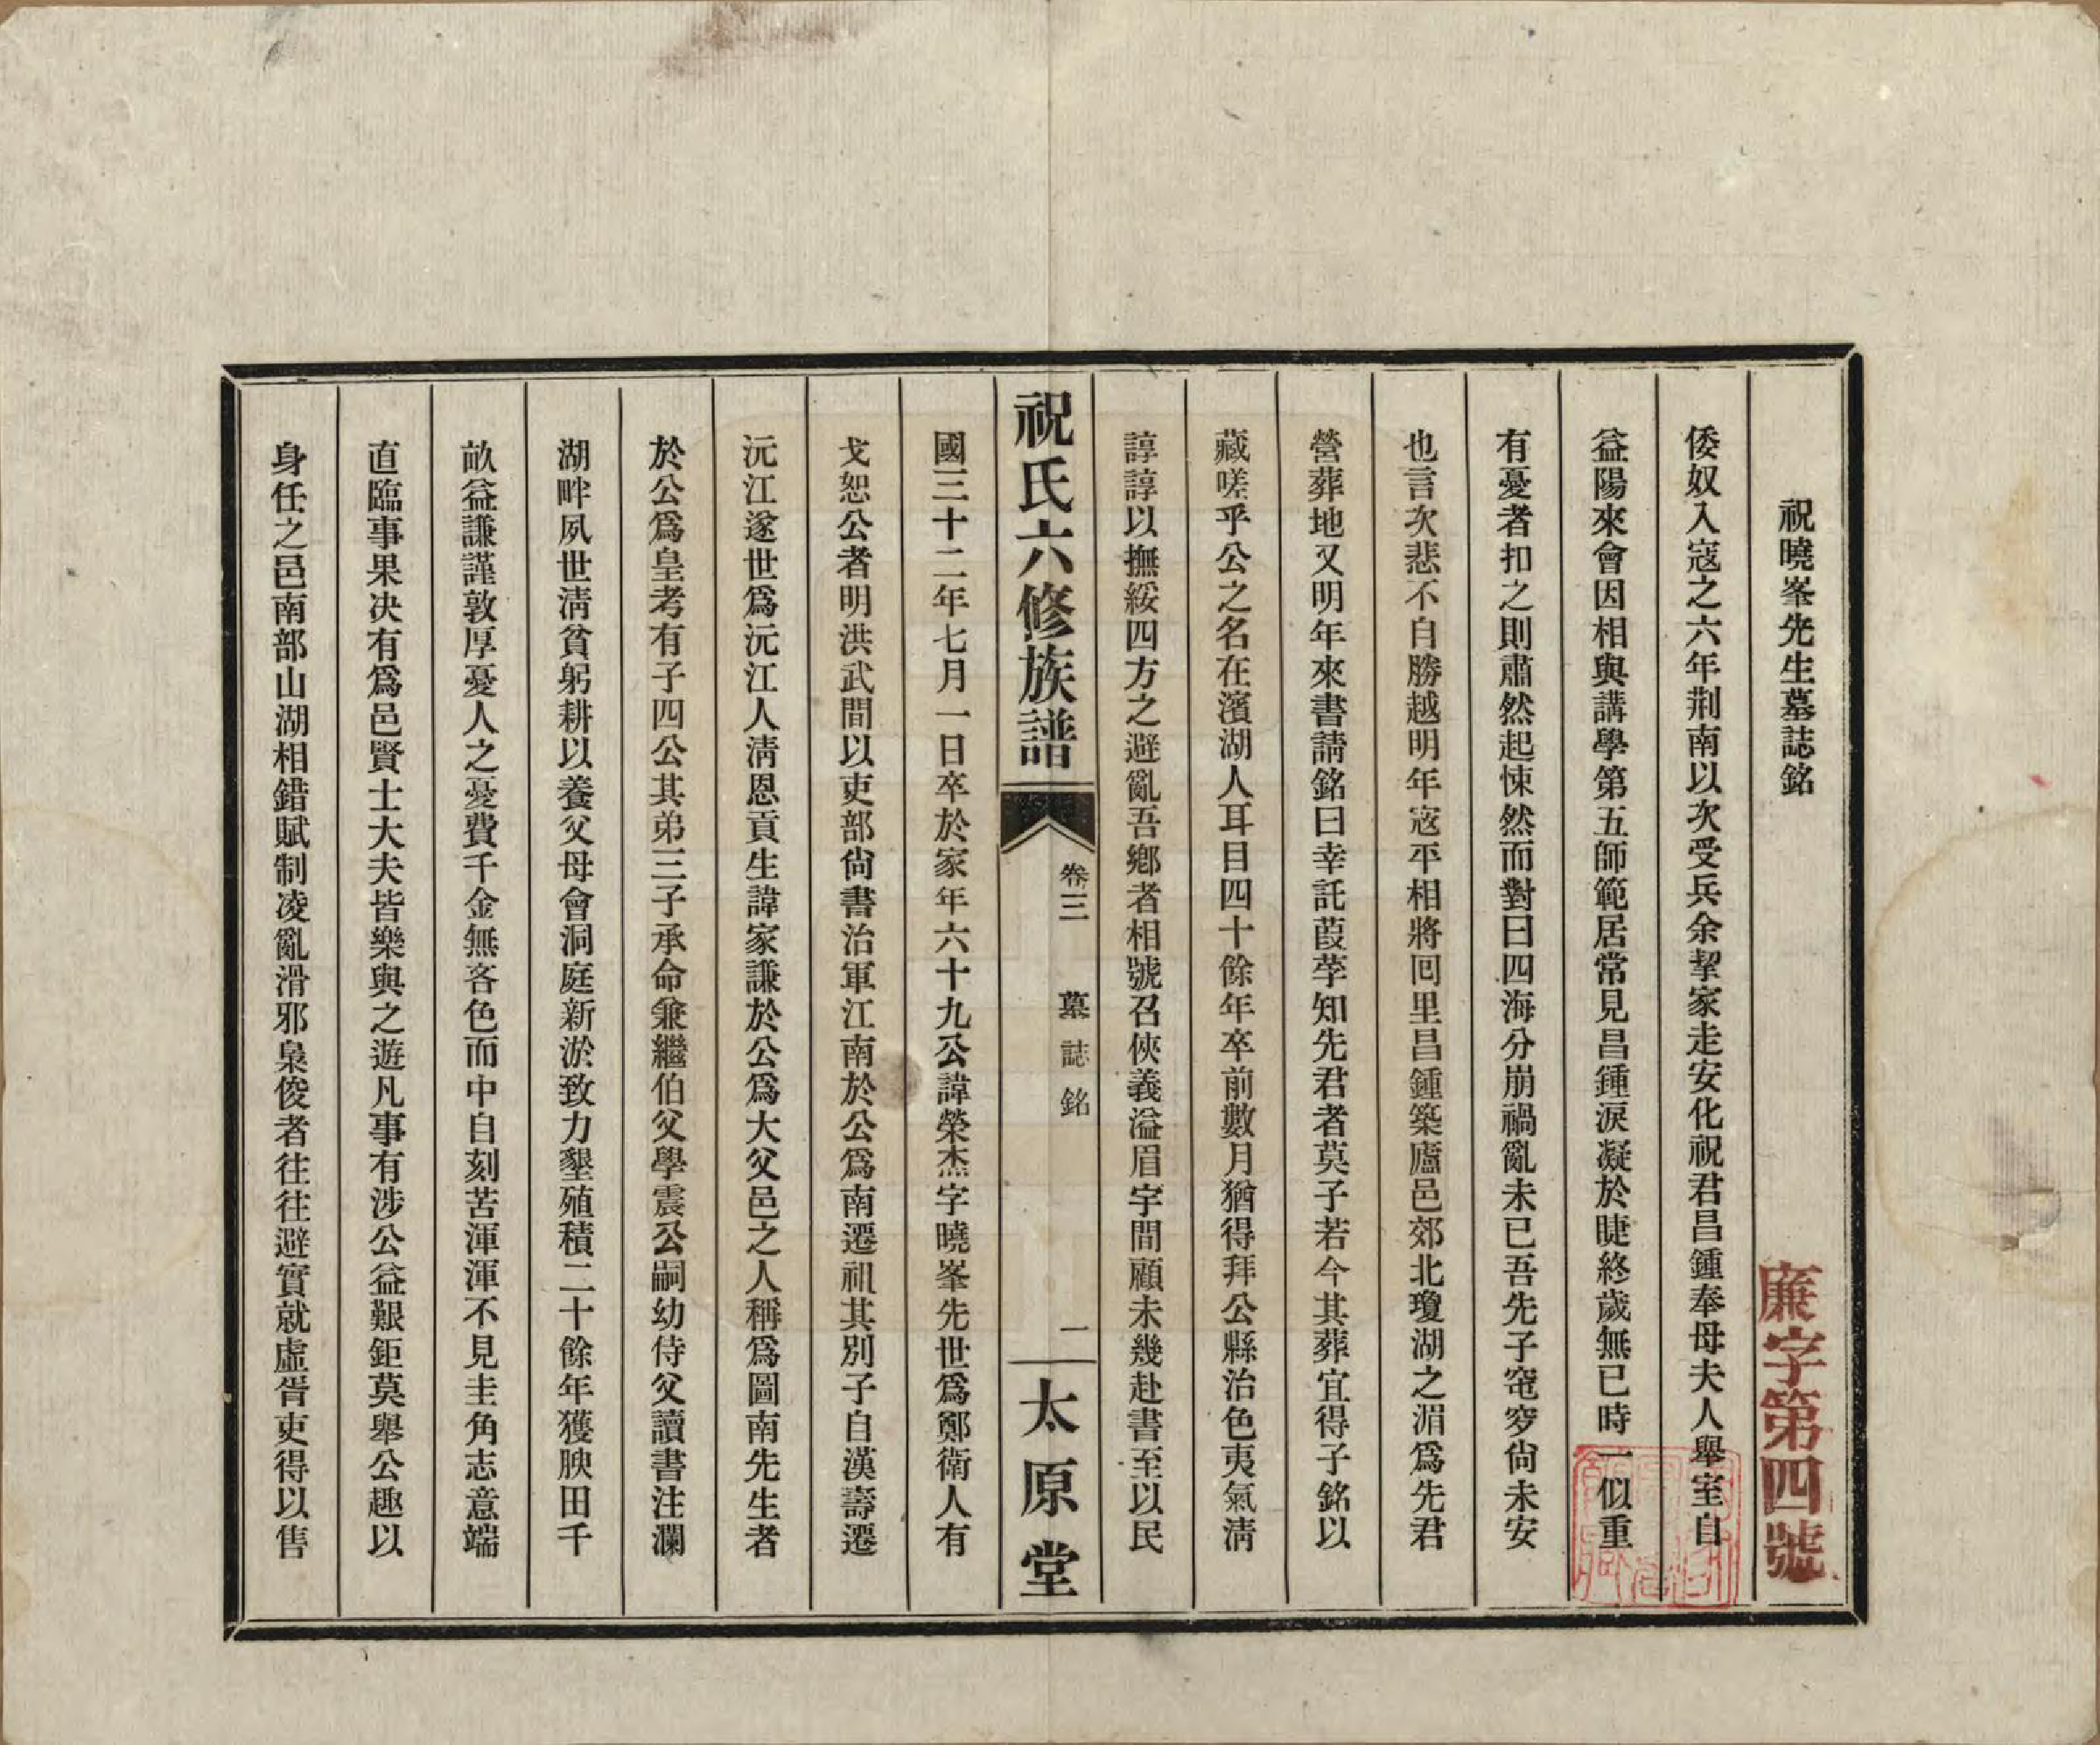 祝曉峯先生墓誌銘
廉字第四號
倭奴入寇之六年荆南以次受兵余挈家走安化祝君昌鍾奉母夫人舉室自
益陽來會因相與講學第五師範居常見昌鍾淚凝於睫終歲無已時一似重
有憂者扣之則肅然起悚然而對曰四海分崩禍亂未已吾先子窀穸尙未安
也言次悲不自勝越明年寇平相將囘里昌鍾築廬邑郊北瓊湖之湄爲先君
營葬地又明年來書請銘曰幸託葭莩知先君者莫子若今其葬宜得子銘以
藏嗟乎公之名在濱湖人耳目四十餘年卒前數月猶得拜公縣治色夷氣淸
諄諄以撫綏四方之避亂吾鄉者相號召俠義溢眉宇間顧未幾赴書至以民
祝氏六修族譜
卷三
墓誌銘
一
太原堂
國三十二年七月一日卒於家年六十九公諱榮杰字曉峯先世爲鄭衛人有
戈恕公者明洪武間以吏部尙書治軍江南於公爲南遷祖其別子自漢壽遷
沅江遂世爲沅江人淸恩貢生諱家謙於公爲大父邑之人稱爲圖南先生者
於公爲皇考有子四公其弟三子承命兼繼伯父學震公嗣幼侍父讀書注瀾
湖畔夙世淸貧躬耕以養父母會洞庭新淤致力墾殖積二十餘年獲腴田千
畝益謙謹敦厚憂人之憂費千金無吝色而中自刻苦渾渾不見圭角志意端
直臨事果决有爲邑賢士大夫皆樂與之遊凡事有涉公益艱鉅莫舉公趣以
身任之邑南部山湖相錯賦制凌亂滑邪梟俊者往往避實就虛胥吏得以售